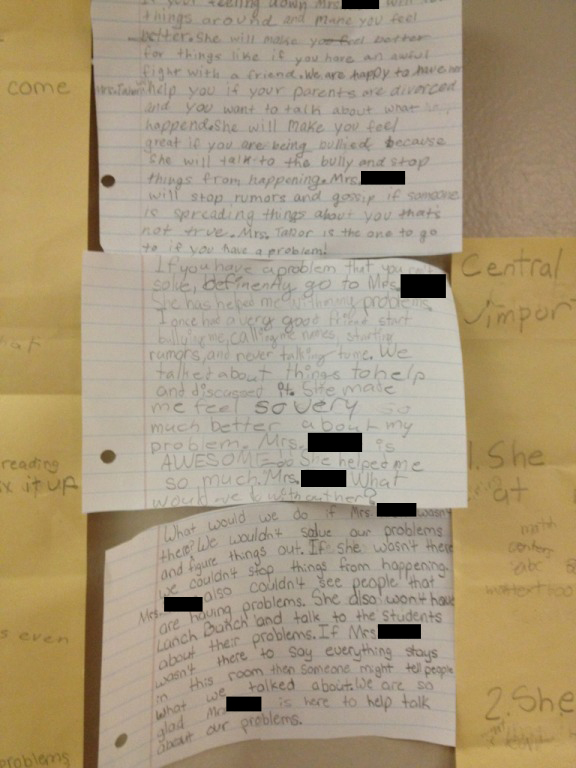 If your feeling down Mrs.
things around and make you feel
better. She will make you feel better
for things like if you have an awful
fight with a friend. We are happy to have her
Mrs. Tabor help you if your parents are divorced
and you want to talk about what
happend. She will make you feel
great if you are being bullied because
she will talk to the bully and stop
things from happening. Mrs.
will stop rumors and gossip if someone
is spreading things about you that's
not true. Mrs. Tabor is the one to go
to if you have a problem!
If you have a problem that you can't
solve, definently go to Mrs.
She has helped me with my problems.
I once had a very good friend start
bullying me, calling me names, starting
rumors, and never talking to me. We
talked about things to help
and discussed it. She made
me feel so very so
much better about my
problem. Mrs. is
AWESOME! She helped me
so much. Mrs. What
would we do without her?
What would we do if Mrs wasn't
there? We wouldn't solve our problems
and figure things out. If she wasn't there
we couldn't stop things from happening.
Mrs. also couldn't see people that
are having problems. She also won't have
Lanch Bunch and talk to the students
about their problems. If Mrs
wasn't there to say everything stays
in this room then someone might tell people
what we talked about. We are so
glad Mrs is here to help talk
about our problems.
come
reading
x it up
s even
problems
Central
import
1. She
at
math
centers
abc
2. She